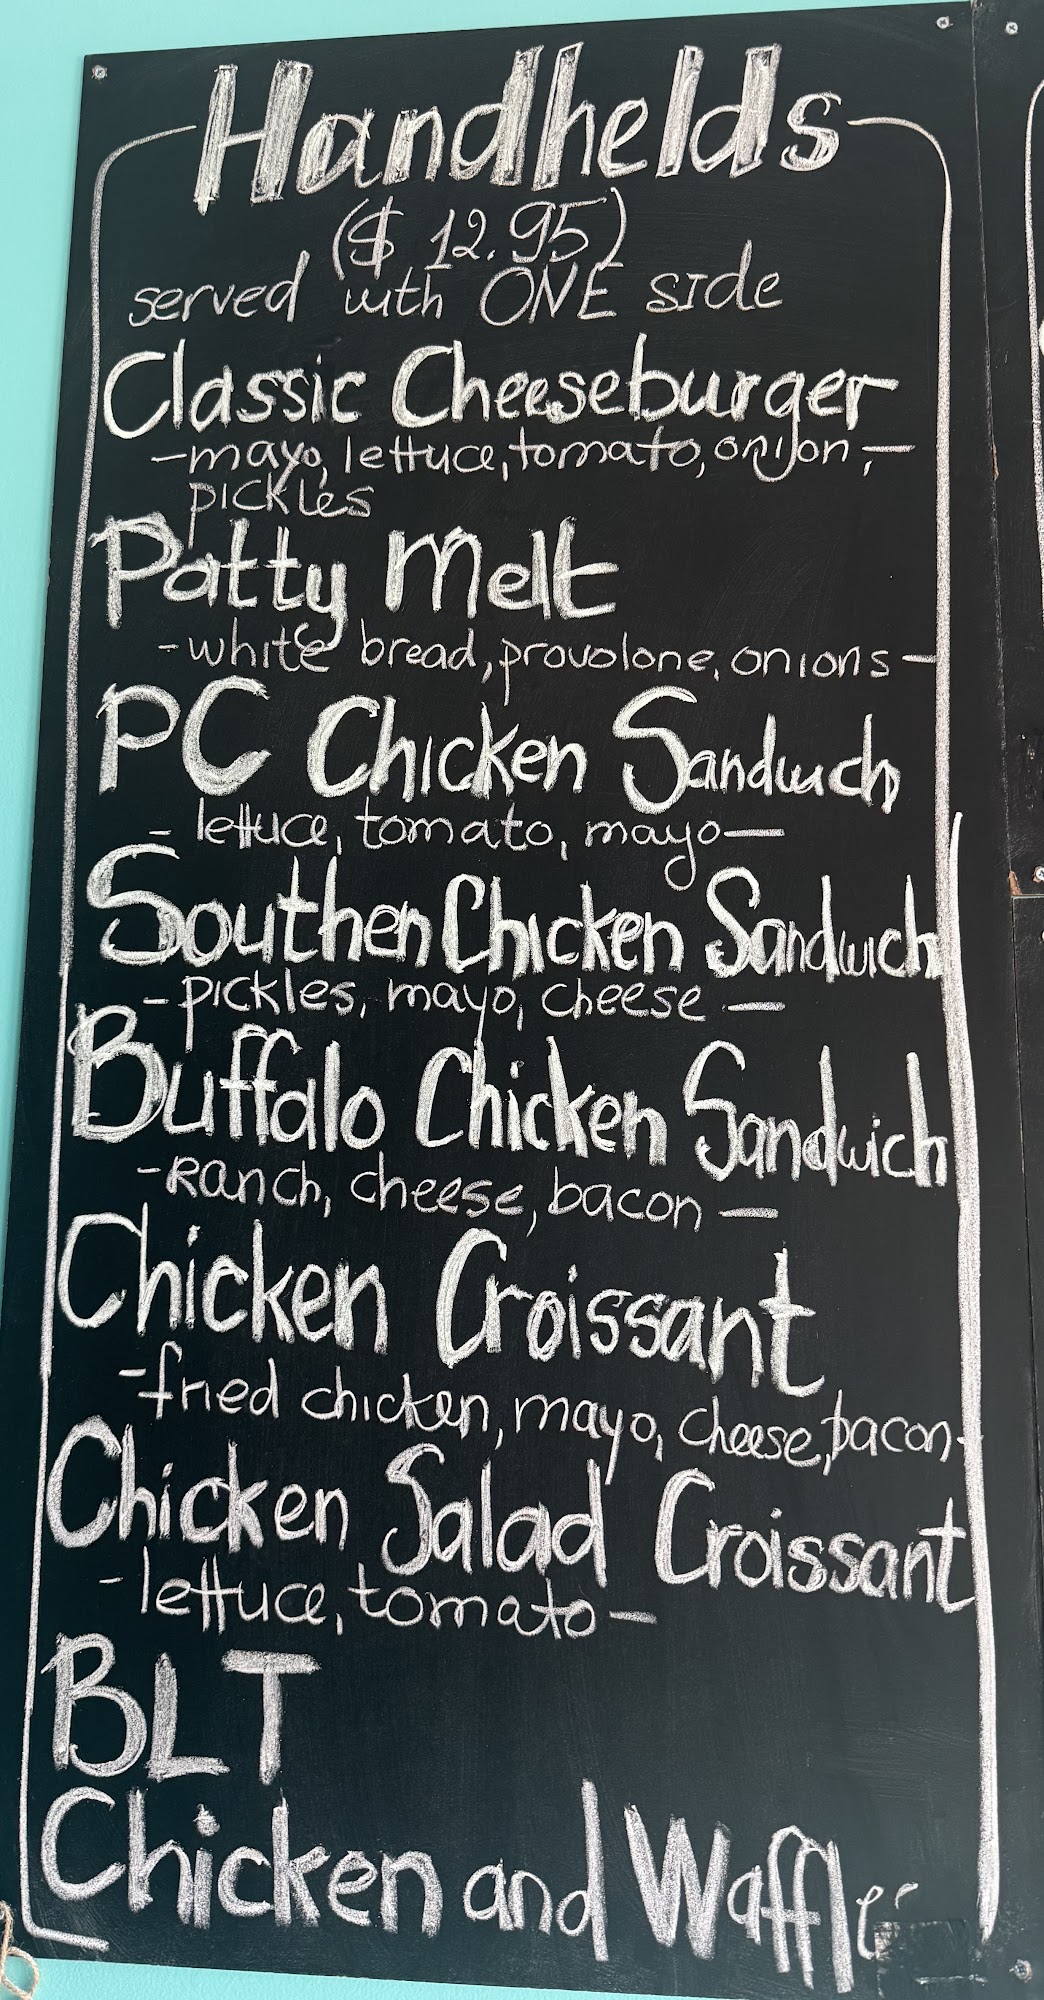 Handhelds
($ 12.95)
served with ONE side
Classic Cheeseburger
-mayo, lettuce, tomato, onion,-
pickles
Patty Melt
-white bread, provolone, onions-
PC Chicken Sandwich
- lettuce, tomato, mayo-
Southen Chicken Sandwich
-pickles, mayo, cheese -
Buffalo Chicken Sandwich
-Ranch, cheese, bacon -
Chicken Croissant
-fried chicken, mayo, cheese, bacon-
Chicken Salad Croissant
-lettuce, tomato-
BLT
Chicken and Waffles